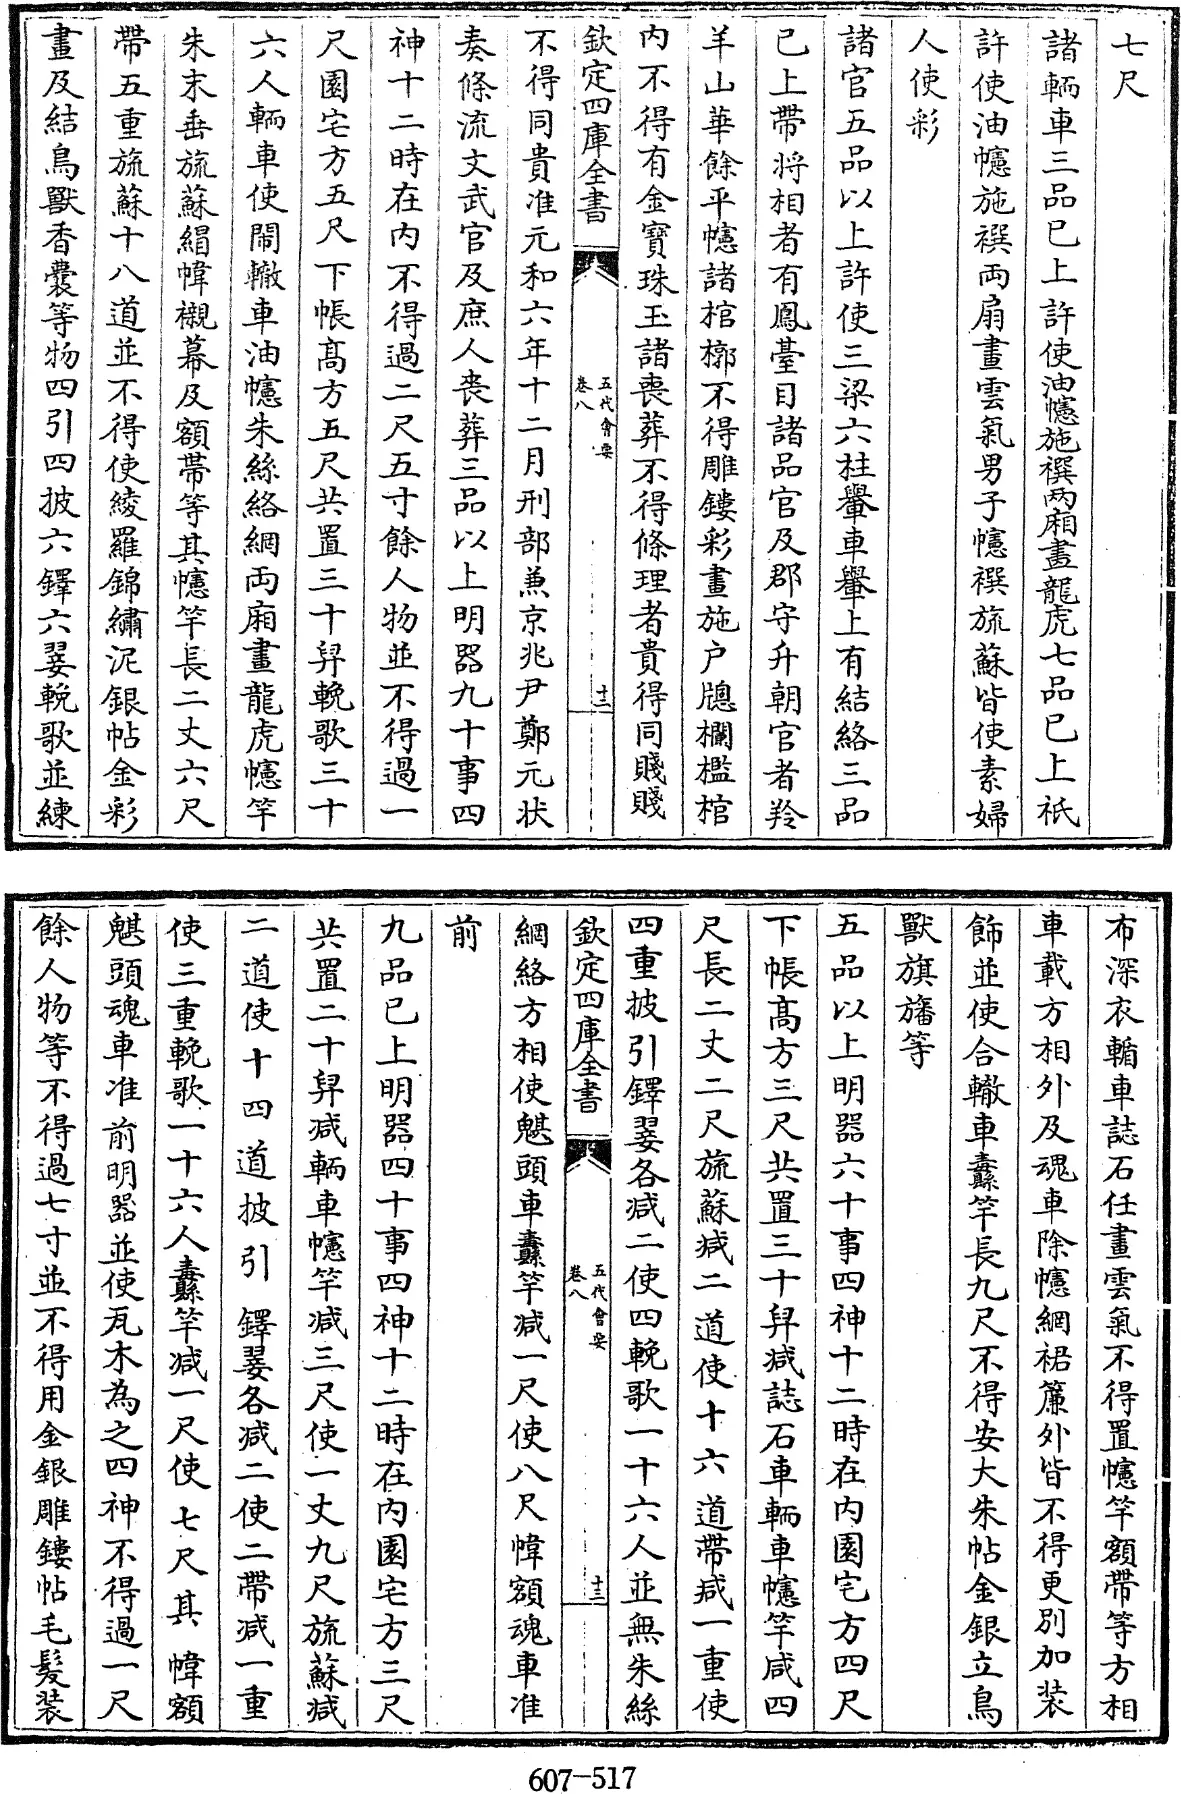 七尺
諸輀車三品已上許使油幰施襈两廂畫龍虎七品已上祇
許使油幰施襈両扇畫雲氣男子幰襈旒蘇皆使素婦
人使彩
諸官五品以上許使三梁六柱轝車轝上有結絡三品
已上帶将相者有鳳臺目諸品官及郡守升朝官者羚
羊山華餘平幰諸棺槨不得雕鏤彩畫施户牎欄檻棺
内不得有金寶珠玉諸喪葬不得條理者貴得同賤賤
欽定四庫全書
五代會要
卷八
十三
不得同貴准元和六年十二月刑部兼京兆尹鄭元状
奏條流文武官及庶人喪葬三品以上明器九十事四
神十二時在内不得過二尺五寸餘人物並不得過一
尺園宅方五尺下帳髙方五尺共置三十舁輓歌三十
六人輀車使閙轍車油幰朱絲絡網両廂畫龍虎幰竿
朱末垂旒蘇絹幃襯幕及額帶等其幰竿長二丈六尺
帶五重旒蘇十八道並不得使綾羅錦繡泥銀帖金彩
畫及結鳥獸香囊等物四引四披六鐸六翣輓歌並練
布深衣輴車誌石任畫雲氣不得置幰竿額帶等方相
車載方相外及魂車除幰網裙簾外皆不得更别加装
飾並使合轍車纛竿長九尺不得安大朱帖金銀立鳥
獸旗旛等
五品以上明器六十事四神十二時在内園宅方四尺
下帳髙方三尺共置三十舁减誌石車輀車幰竿咸四
尺長二丈二尺旒蘇减二道使十六道帶减一重使
四重披引鐸翣各减二使四輓歌一十六人並無朱絲
欽定四庫全書
五代會要
卷八
十三
網絡方相使魌頭車纛竿减一尺使八尺幃額魂車准
前
九品已上明器四十事四神十二時在内園宅方三尺
共置二十舁减輀車幰竿减三尺使一丈九尺旒蘇减
二道使十四道披引鐸翣各减二使二帶减一重
使三重輓歌一十六人纛竿减一尺使七尺其幃額
魌頭魂車准前明器並使瓦木為之四神不得過一尺
餘人物等不得過七寸並不得用金銀雕鏤帖毛髮装
607-517